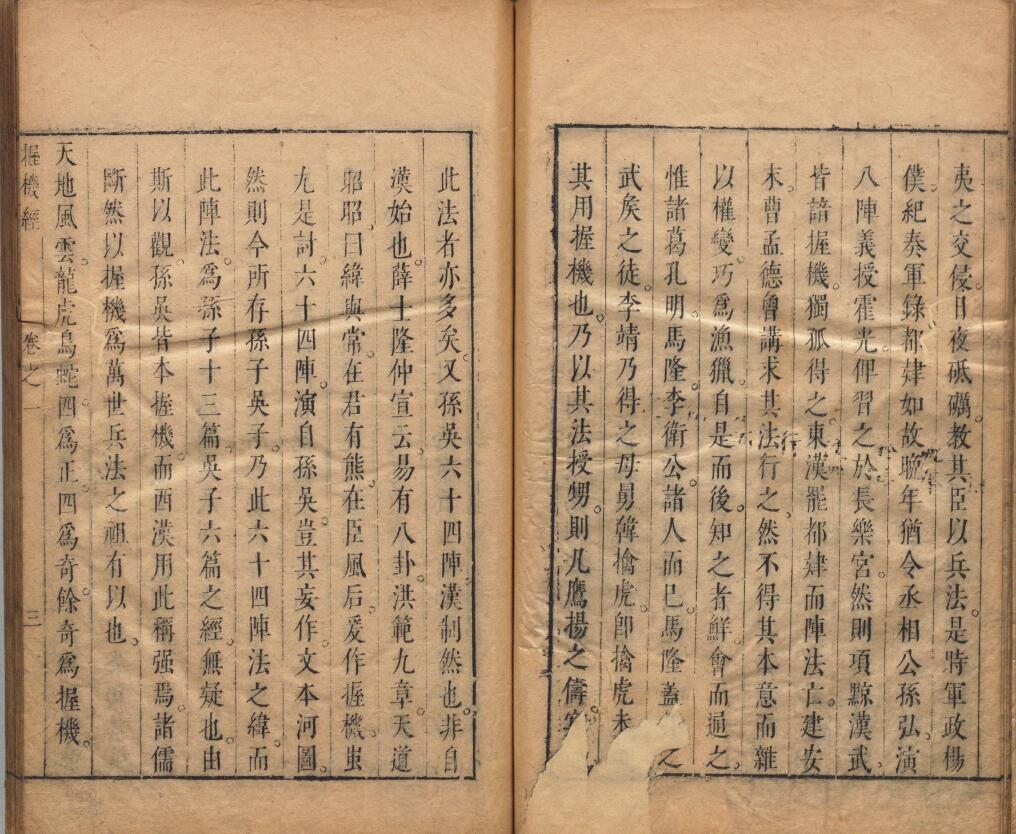 夷之交侵。日夜砥礪。教其臣以兵法。是時軍政楊
僕。紀奏軍錄。都肄如故。晚年猶令丞相公孫弘。演
八陣義。授霍光。俾習之於長樂宮。然則項黥漢武。
皆諳握機。獨孤得之。東漢罷都肄而陣法亡。建安
末。曹孟德曾講求其法行之。然不得其本意而雜
以權變。巧為漁獵。自是而後。知之者鮮。會而通之。
惟諸葛孔明。馬隆。李衛公。諸人而已。馬隆蓋之
武矦之徒。李靖乃得之母舅韓擒虎。卽擒虎未
其用握機也。乃以其法授甥。則凡鷹揚之儔。
此法者亦多矣。又孫吳六十四陣。漢制然也。非自
漢始也。薛士隆仲宣云。易有八卦。洪範九章。天道
昭昭。曰緯與常。在君有熊。在臣風后。爰作握機。蚩
尤是討。六十四陣。演自孫吳。豈其妄作。文本河圖。
然則今所存孫子吳子。乃此六十四陣法之緯。而
此陣法。爲孫子十三篇。吳子六篇之經。無疑也。由
斯以觀。孫吳皆本握機。而西漢用此稱强焉。諸儒
斷然以握機爲萬世兵法之祖。有以也。
天地風雲。龍虎鳥蛇。四爲正。四爲奇。餘奇爲握機。
握機經 卷之一 三